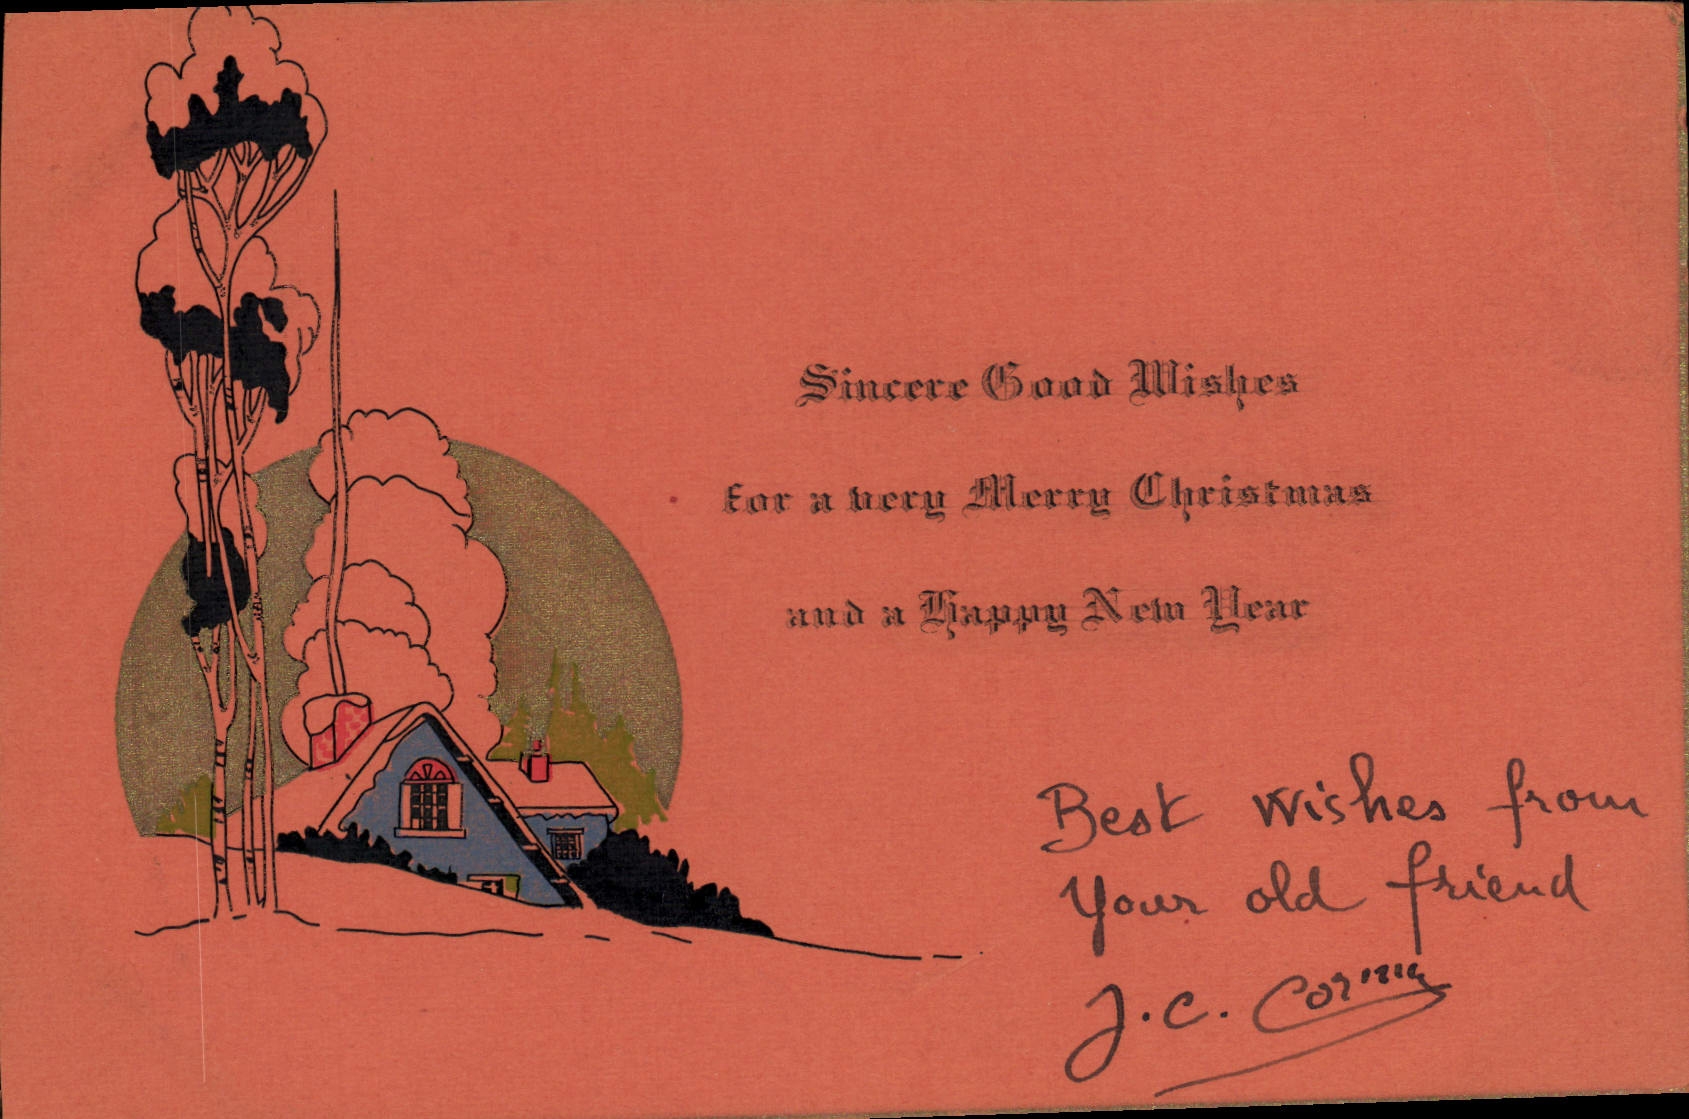 Sincere Good Wishes
for a very Merry Christmas
and a Happy New Year
Best wishes from
Your old friend
J. C.